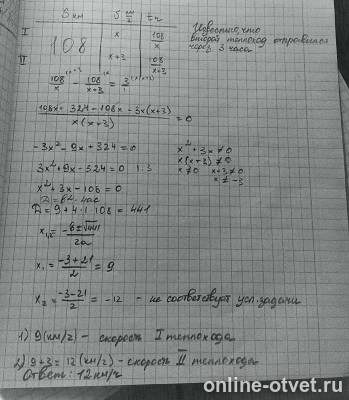 S км | V км/ч | t ч
I | 108 | x | 108/x
II | x+3 | 108/x+3
Известно, что
второй теплоход отправился
через 3 часа
108/x (x+3) - 108/x+3 (x = 3/1 (x(x+3)
108x + 324 - 108x - 3x(x+3) / x(x+3) = 0
-3x² - 9x + 324 = 0
x² + 3x ≠ 0
3x² + 9x - 324 = 0 | :3
x(x+3) ≠ 0
x ≠ 0 x+3 ≠ 0
x ≠ -3
x² + 3x - 108 = 0
D = b² - 4ac
D = 9 + 4·1·108 = 441
x₁,₂ = -b±√441 / 2a
x₁ = -3+21 / 2 = 9
x₂ = -3-21 / 2 = -12 - не соответствует усл. задачи
1) 9 (км/ч) - скорость I теплохода
2) 9+3 = 12 (км/ч) - скорость II теплохода
Ответ: 12 км/ч
online-otvet.ru